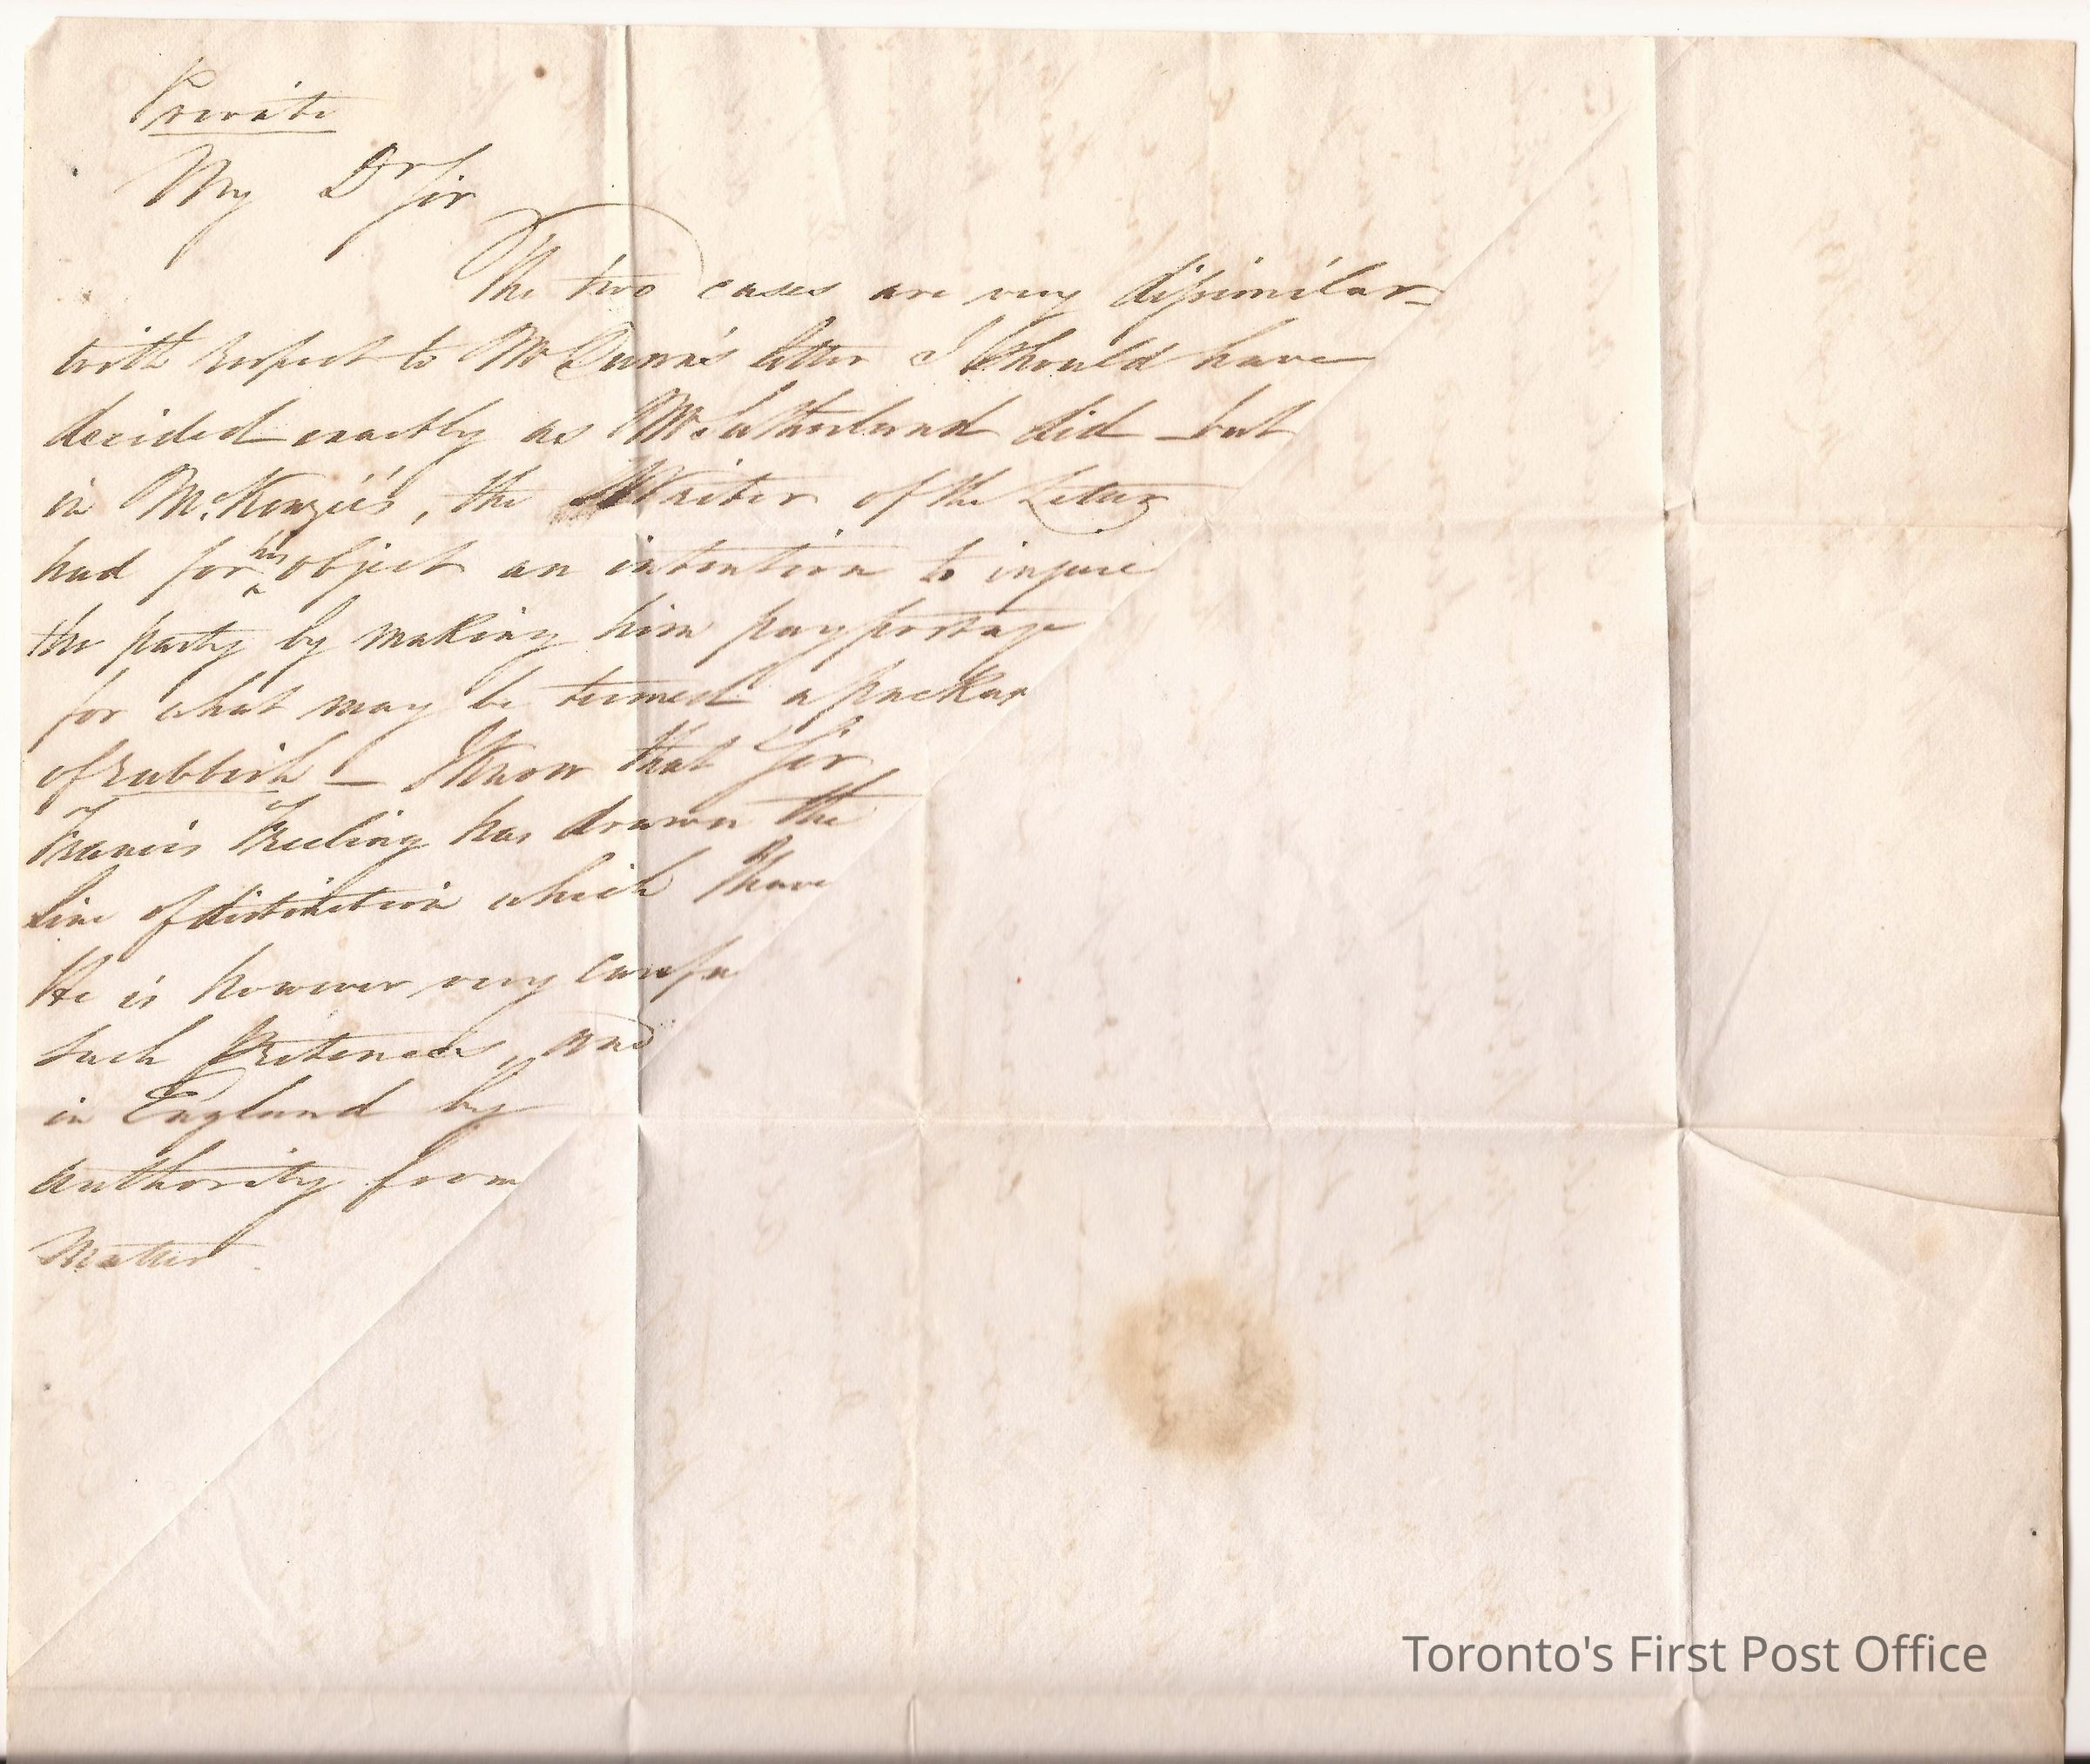 Private
My Dr Sir
The two cases are very dissimilar
with respect to Mr Dunn's letter I should have
decided exactly as Mr Sutherland did - but
in McKenzie's, the Writer of the Letter
had for his object an intention to injure
the party by making him pay postage
for what may be termed a packet
of rubbish - I know that Sir
Francis Freeling has drawn the
line of distinction which I have
He is however very
such Pretences, and
in England by
authority from
Matter
Toronto's First Post Office